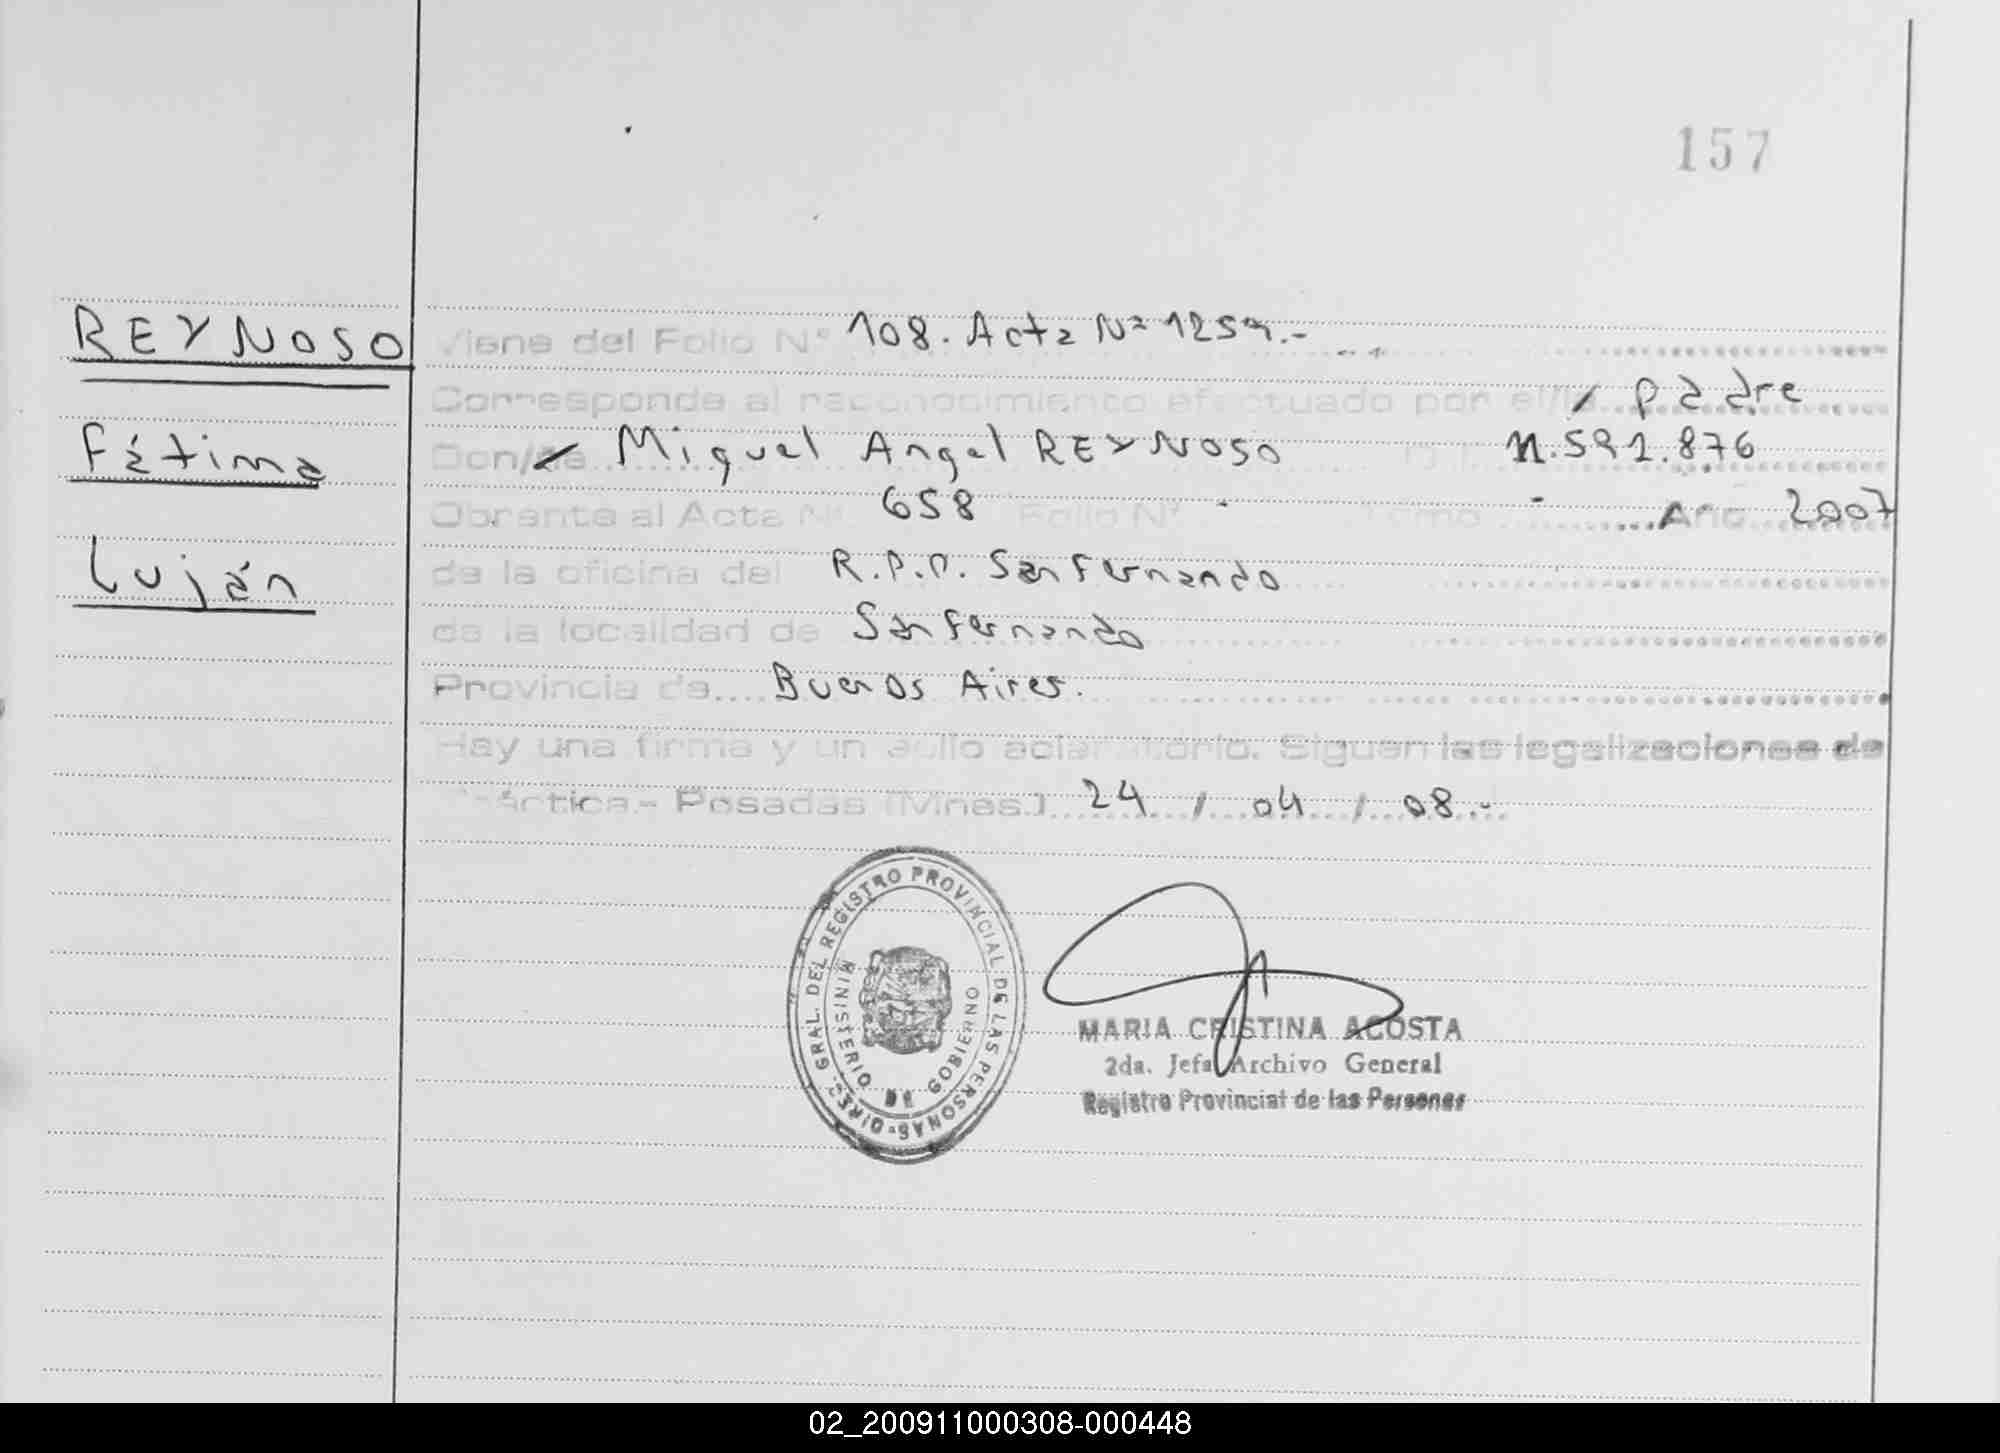 157
REYNOSO
Fátima
Luján
Viene del Folio N° 108. Acta Nº 1259.-
Corresponde al reconocimiento efectuado por el/la padre
Don/ña Miguel Angel REYNOSO D.I. 11.591.876
Obrante al Acta N° 658 - Folio N° - Tomo Año 2007
de la oficina del R.P.P. San Fernando
de la localidad de San Fernando
Provincia de Buenos Aires.
Hay una firma y un sello aclaratorio. Siguen las legalizaciones de
práctica.- Posadas (Mnes.) 24 / 04 / 08.-
DIREC. GRAL. DEL REGISTRO PROVINCIAL DE LAS PERSONAS
MINISTERIO DE GOBIERNO
MARIA CRISTINA ACOSTA
2da. Jefa Archivo General
Registro Provincial de las Personas
02_200911000308-000448